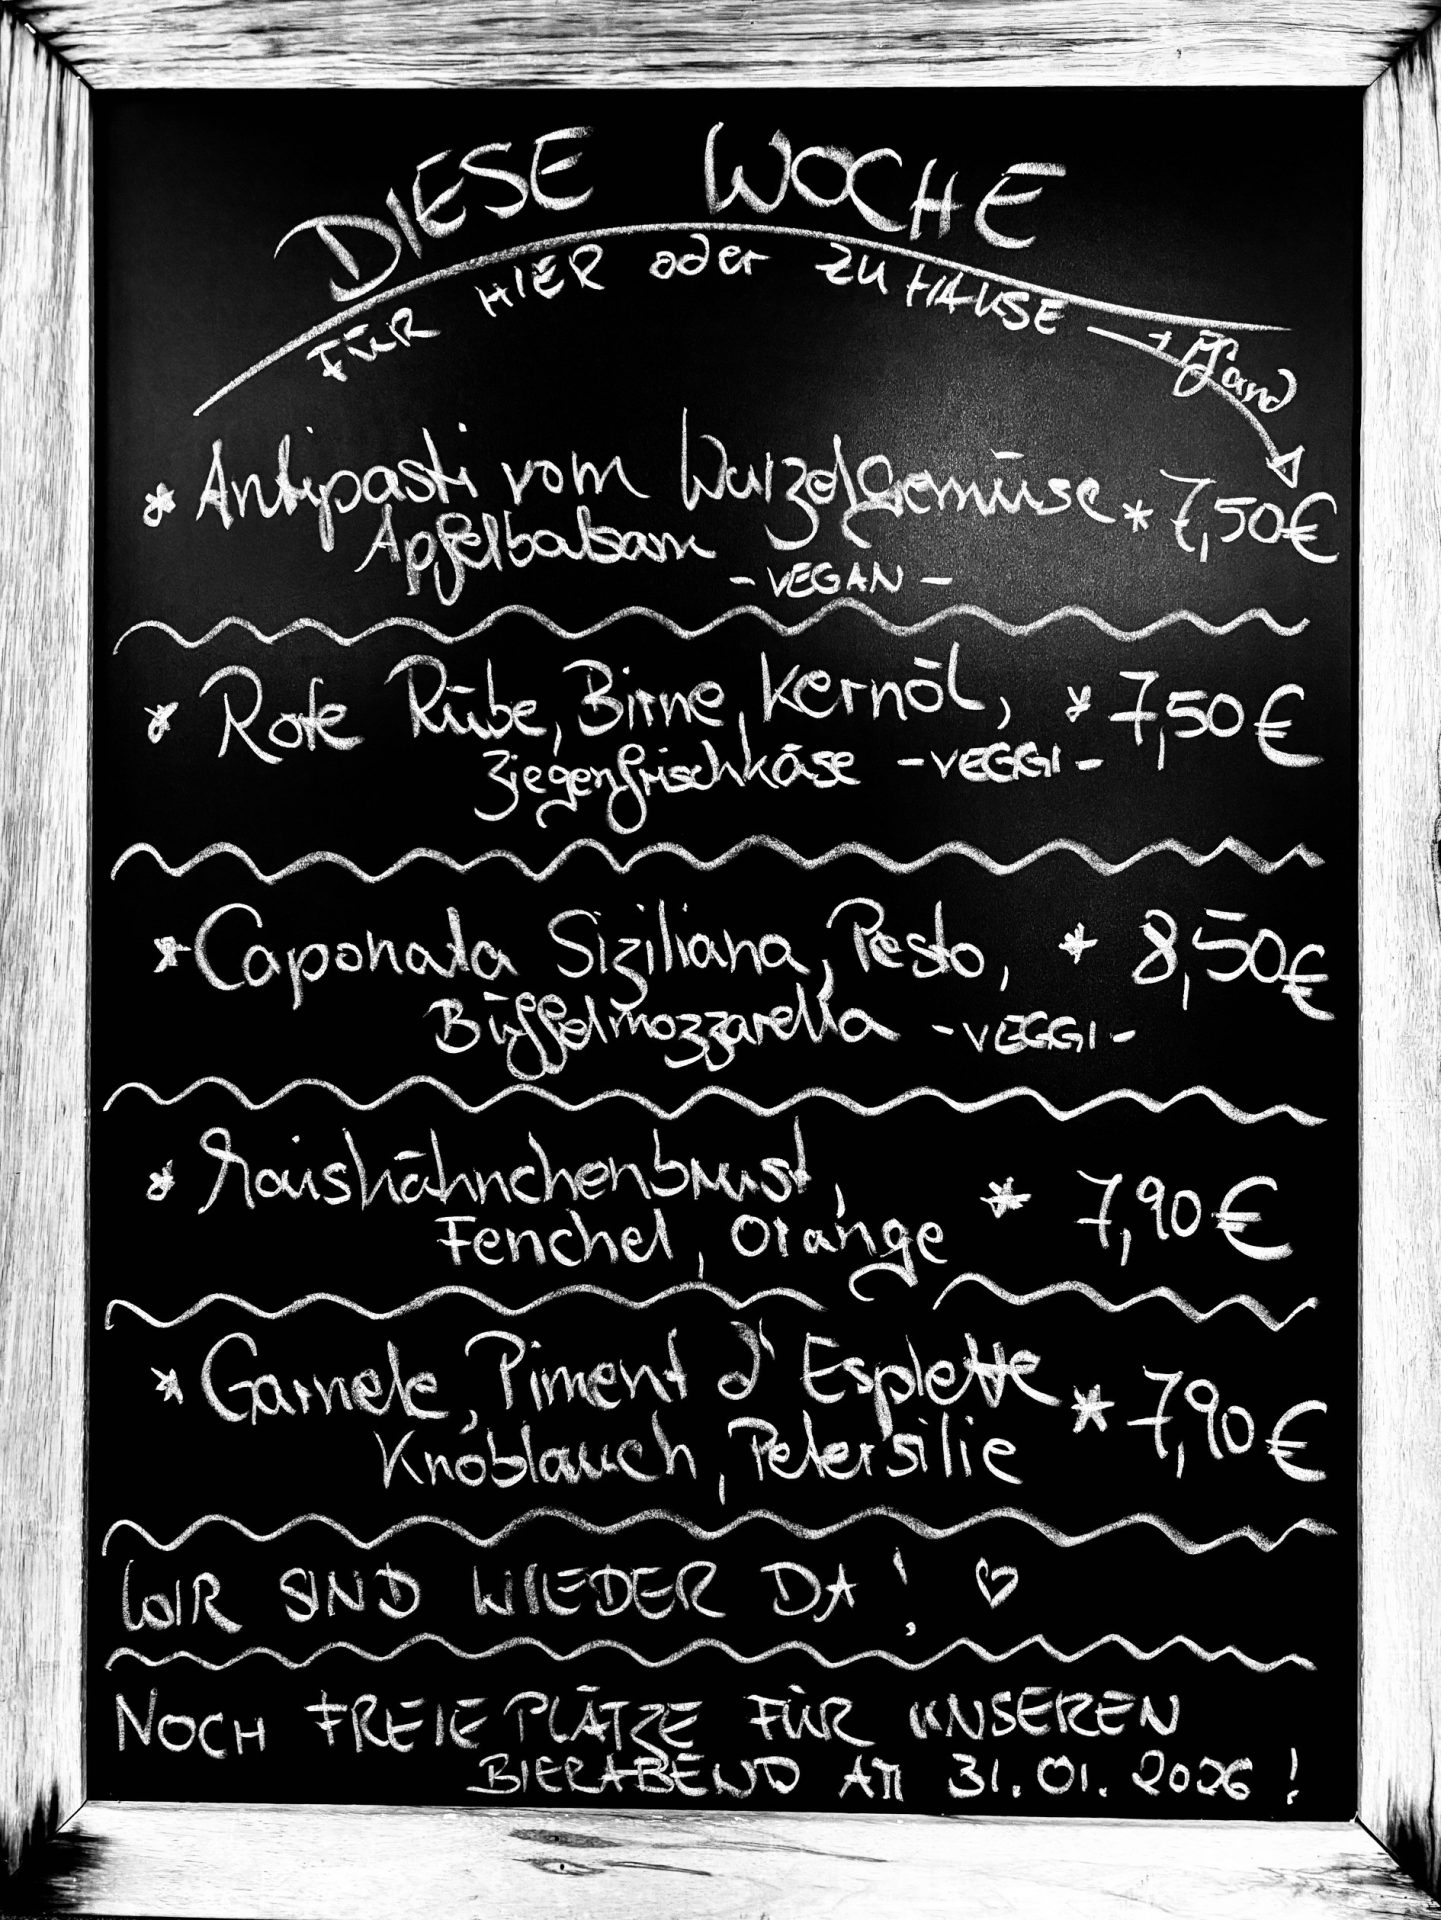 DIESE WOCHE
FÜR HIER oder ZUHAUSE — + Pfand
* Antipasti vom Wurzelgemüse * 7,50€
Apfelbalsam
- VEGAN -
* Rote Rübe, Birne, Kernöl, * 7,50€
Ziegenfrischkäse - VEGGI -
* Caponata Siziliana, Pesto, * 8,50€
Büffelmozzarella - VEGGI -
* Maishähnchenbrust, * 7,90€
Fenchel, Orange
* Garnele, Piment d'Esplette * 7,90€
Knoblauch, Petersilie
WIR SIND WIEDER DA! ♡
NOCH FREIE PLÄTZE FÜR UNSEREN
BIERABEND AM 31.01.2026!